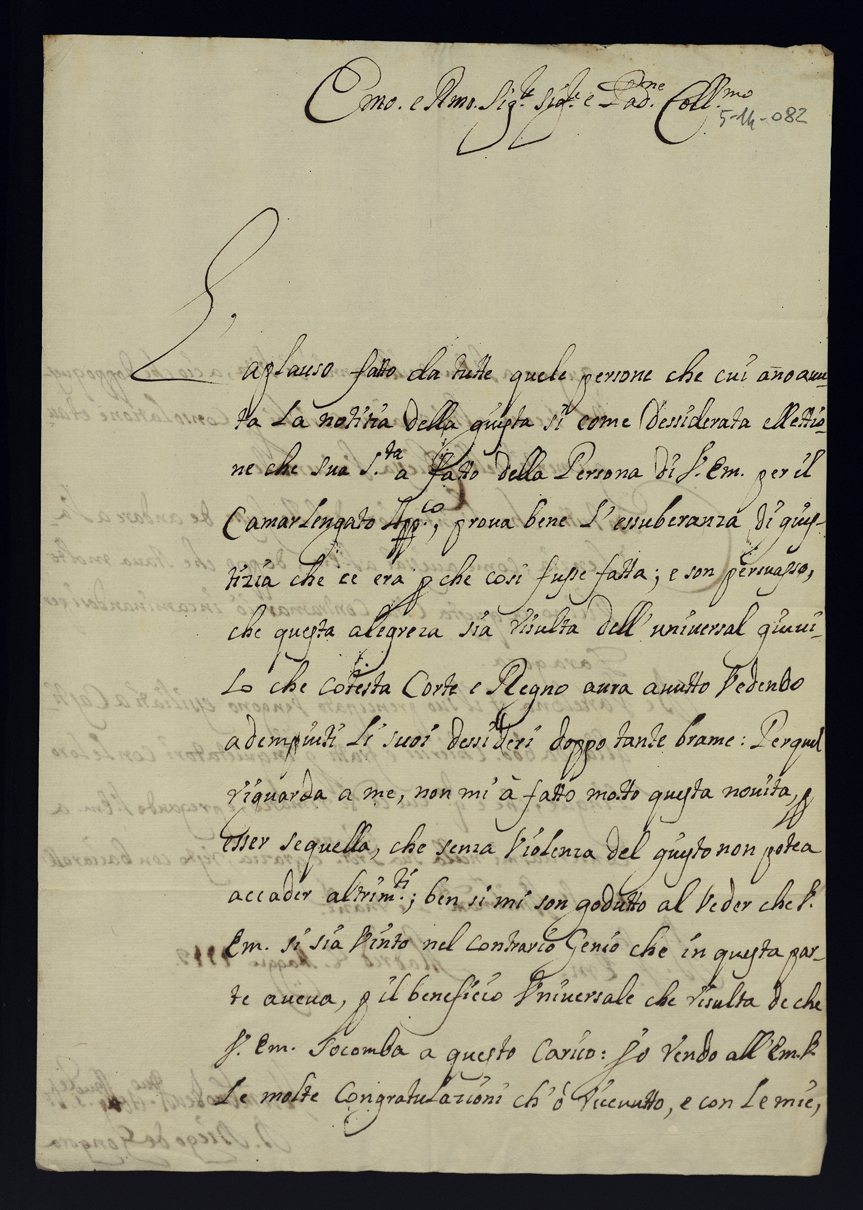 Emo. e Rmo. Sig.re Sig.re e Pad.ne Coll.mo
5-14-082
L'
aplauso fatto da tutte quele persone che cui añoauu-
ta La notitia della giusta si come Dessiderata ellettio-
ne che sua S.ta a fatto della Persona di V. Em. per il
Camarlengato App.co, prova bene L'essuberanza di gius-
tizia che ce era p che cosi fusse fatta; e son persuasso,
che questa alegreza sia risulta dell'universal giuui-
Lo che cotesta Corte e Regno aura auutto Vedendo
adempiuti Li suoi dessideri doppo tante brame: Per quel
riguarda a me, non mi à fatto motto questa novita, p
esser sequella, che senza Violenza del giusto non potea
accader altrim.ti; ben si mi son godutto al Veder che V.
Em. si sia Vinto nel contrario Genio che in questa par-
te aueua, p il beneficio Vniversale che risulta de che
V. Em. Socomba a questo Carico: Jo rendo all'Em. V.
Le molte Congratulazioni ch'ò riceuutto, e con Le mie,